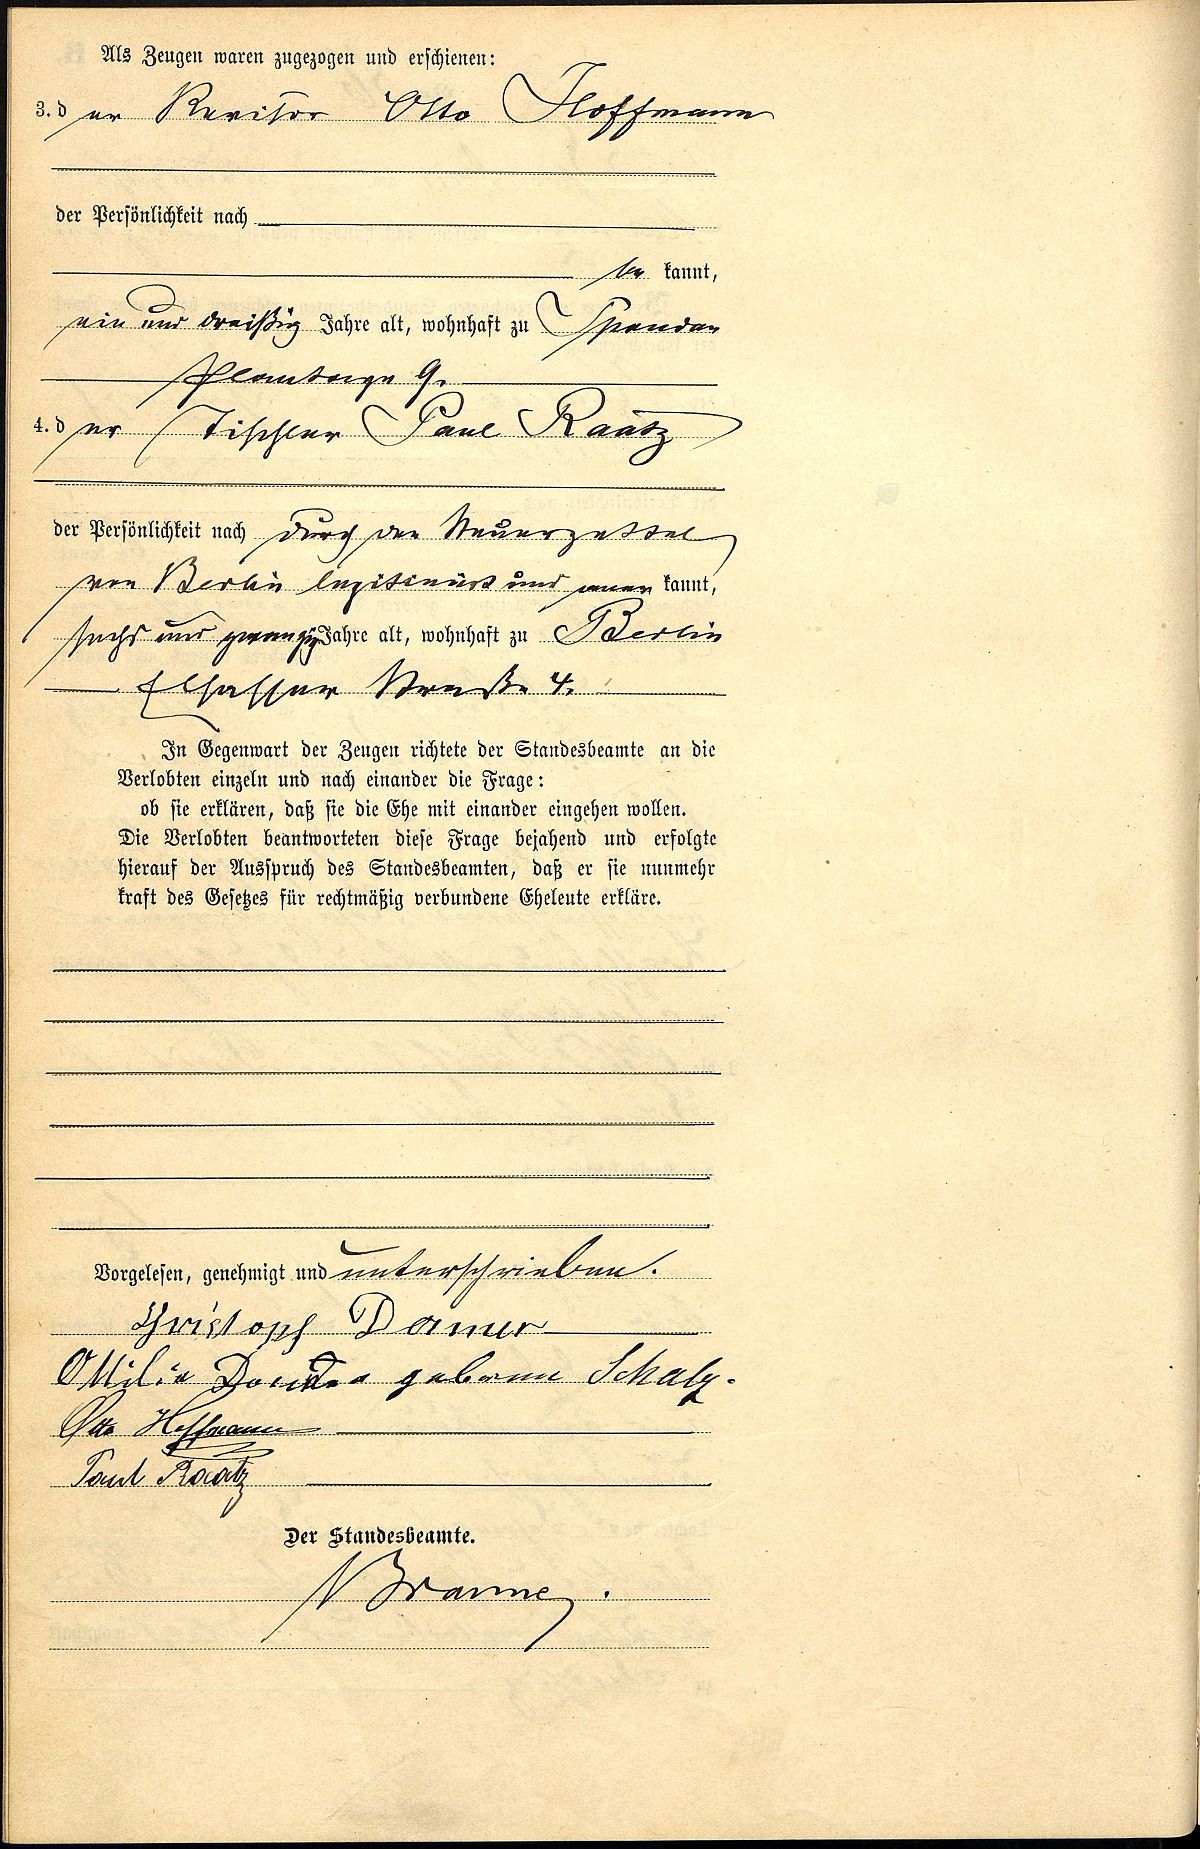 Als Zeugen waren zugezogen und erschienen:
3. der Revisor Otto Hoffmann
der Persönlichkeit nach
be kannt,
ein und dreißig Jahre alt, wohnhaft zu Spandau
Plantage 9.
4. der Tischler Paul Raatz
der Persönlichkeit nach durch den Steuerzettel
von Berlin legitimirt und aner kannt,
sechs und zwanzig Jahre alt, wohnhaft zu Berlin
Elsasser Straße 4.
In Gegenwart der Zeugen richtete der Standesbeamte an die
Verlobten einzeln und nach einander die Frage:
ob sie erklären, daß sie die Ehe mit einander eingehen wollen.
Die Verlobten beantworteten diese Frage bejahend und erfolgte
hierauf der Ausspruch des Standesbeamten, daß er sie nunmehr
kraft des Gesetzes für rechtmäßig verbundene Eheleute erkläre.
Vorgelesen, genehmigt und unterschrieben.
Christoph
Ottilie geborene
Otto Hoffmann
Paul Raatz
Der Standesbeamte.